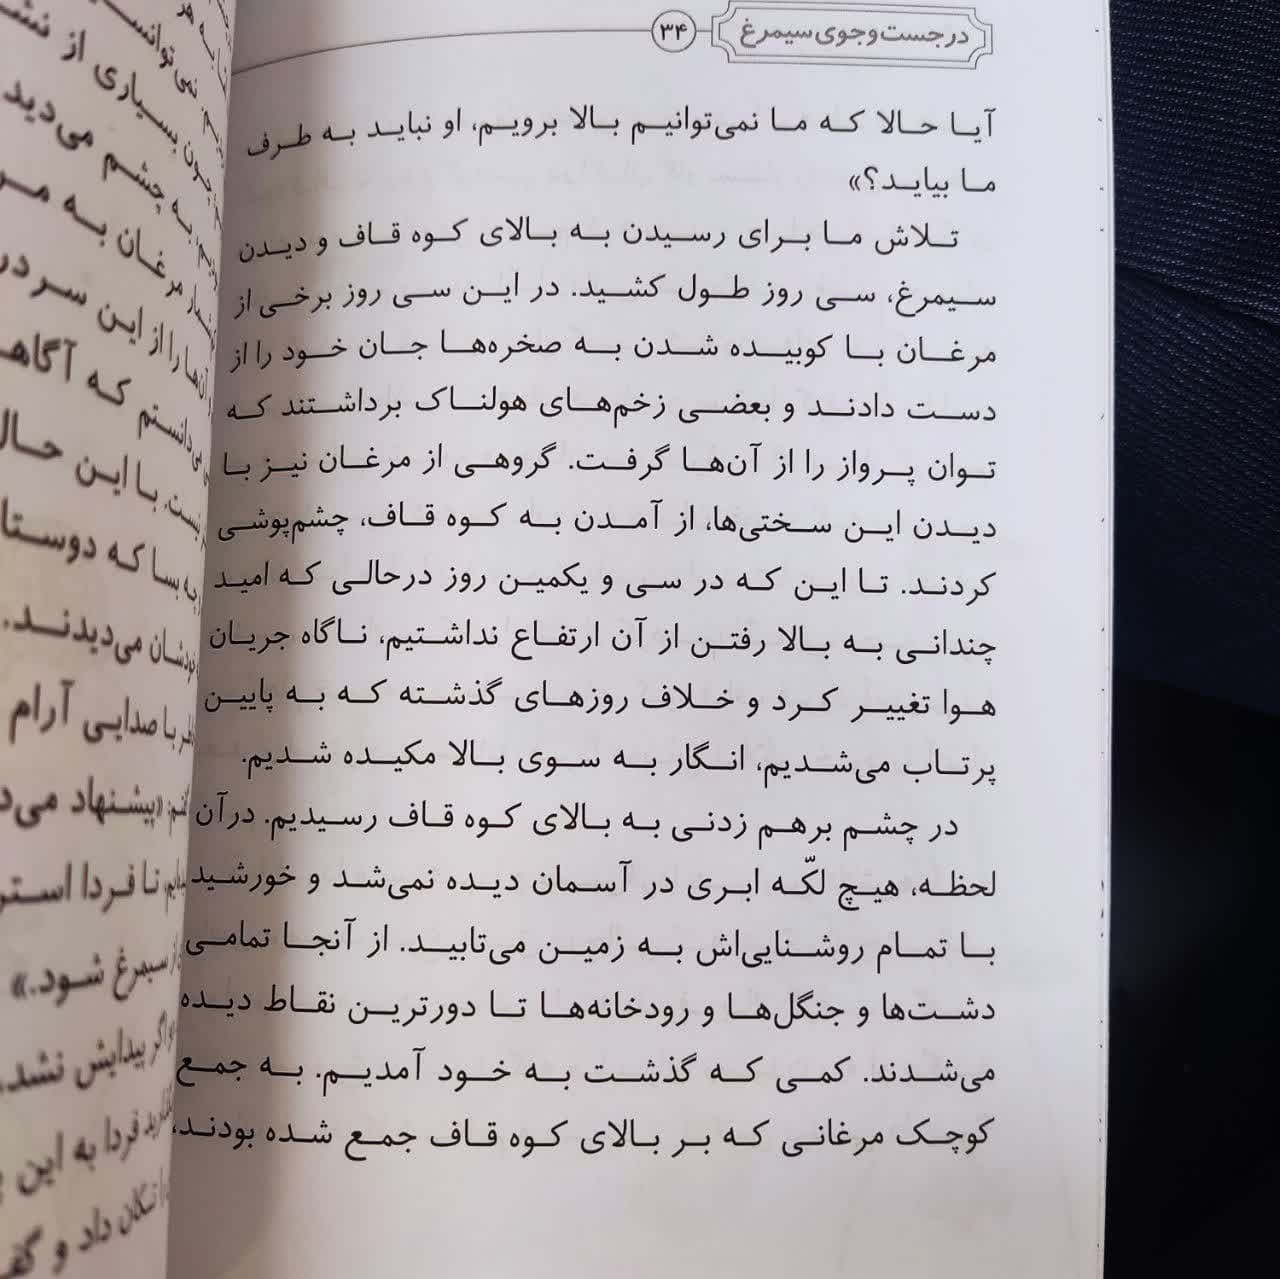 در جست و جوی سیمرغ
۳۴
آیا حالا که ما نمی‌توانیم بالا برویم، او نباید به طرف
ما بیاید؟»
تلاش ما برای رسیدن به بالای کوه قاف و دیدن
سیمرغ، سی روز طول کشید. در این سی روز برخی از
مرغان با کوبیده شدن به صخره‌ها جان خود را از
دست دادند و بعضی زخم‌های هولناک برداشتند که
توان پرواز را از آن‌ها گرفت. گروهی از مرغان نیز با
دیدن این سختی‌ها، از آمدن به کوه قاف، چشم‌پوشی
کردند. تا این که در سی و یکمین روز درحالی که امید
چندانی به بالا رفتن از آن ارتفاع نداشتیم، ناگاه جریان
هوا تغییر کرد و خلاف روزهای گذشته که به پایین
پرتاب می‌شدیم، انگار به سوی بالا مکیده شدیم.
در چشم برهم زدنی به بالای کوه قاف رسیدیم. درآن
لحظه، هیچ لکّه ابری در آسمان دیده نمی‌شد و خورشید
با تمام روشنایی‌اش به زمین می‌تابید. از آنجا تمامی
دشت‌ها و جنگل‌ها و رودخانه‌ها تا دورترین نقاط دیده
می‌شدند. کمی که گذشت به خود آمدیم. به جمع
کوچک مرغانی که بر بالای کوه قاف جمع شده بودند،
نمی‌توانس
چون بسیاری از
به چشم می‌دید
مرغان به
را از این سر در
که آگاه
با این
که دوستا
می‌دیدند.
با صدایی آرام
«پیشنهاد
تا فردا
سیمرغ شود.»
پیدایش نشد
فردا به این
تکان داد و